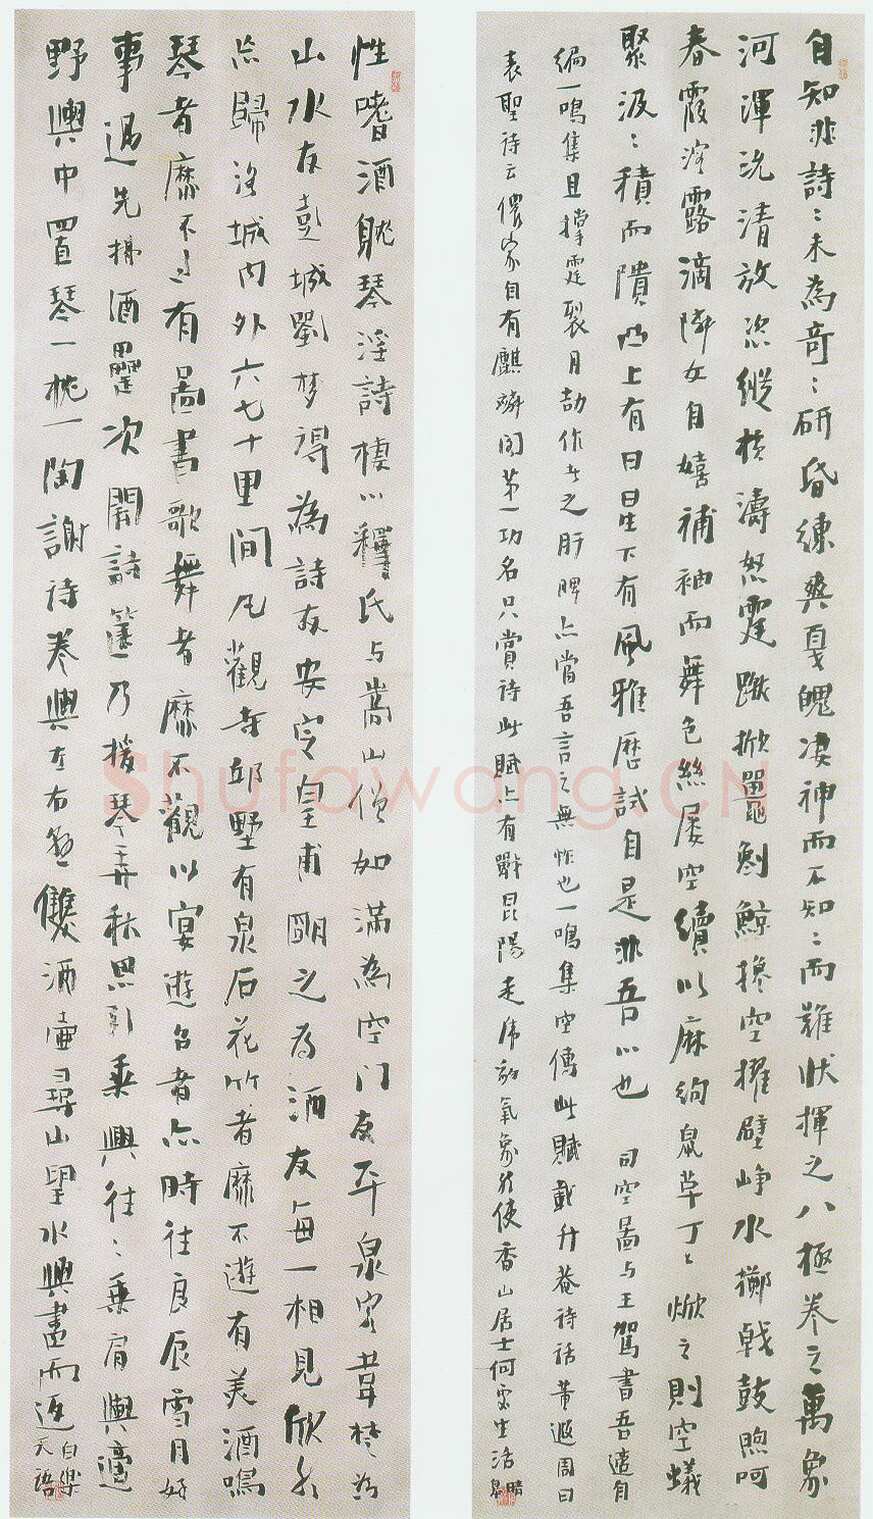 自知非詩〻未為奇〻研昏練爽戛魄凄神而不知〻而難狀揮之八極卷之萬象
河渾沇清放恣縱橫濤怒霆蹴掀鼉倒鯨搀空擢壁崢水擲戟鼓煦呵
春霞溶露滴隣女自嬉補袖而舞色絲屢空續以麻絢鼠草丁〻焮之則空蟻
聚汲〻積而隤凸上有日星下有風雅歷試自是非吾心也 司空圖与王駕書吾適自
編一鳴集且撐霆裂月劼作者之肝脾亦當吾言之無怍也一鳴集空傳此賦載升菴詩話董遐周曰
表聖詩云儂家自有麒麟閣第一功名只賞詩此賦亦有戰昆陽走虎豹氣象能使香山居士何處生活
性嗜酒耽琴淫詩棲心釋氏与嵩山僧如滿為空门友平泉客韋楚為
山水友彭城劉梦得為詩友安定皇甫朗之為酒友每一相見欣然
忘歸洛城内外六七十里間凡觀寺邱墅有泉石花竹者靡不遊有美酒鳴
琴者靡不過有圖書歌舞者靡不觀以宴遊召者亦時往良辰雪月好
事過先拂酒罍次開詩篋乃援琴弄秋思引乘興往〻乘肩輿適
野輿中置琴一枕一陶謝詩卷輿左右懸雙酒壺尋山望水興盡而返
白樂
天語
Shufawang.CN